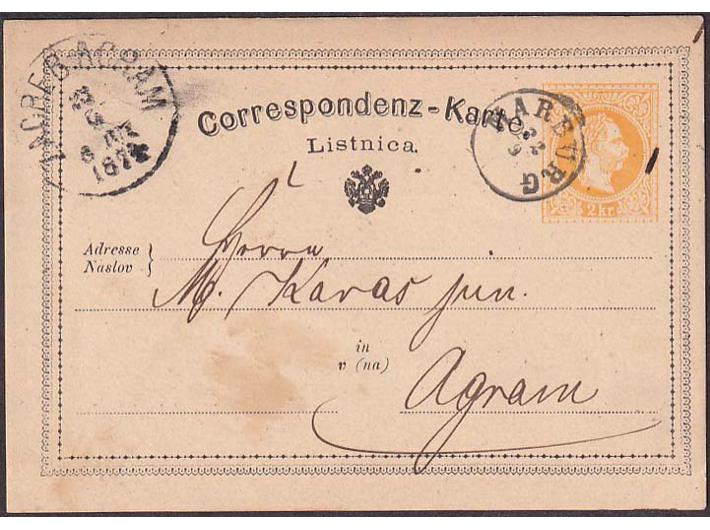 ZAGREB-AGRAM
1874
Correspondenz-Karte.
Listnica.
MARBURG
22
9
2 kr.
Adresse
Naslov
Herrn
M. Karas jun.
in
v (na)
Agram